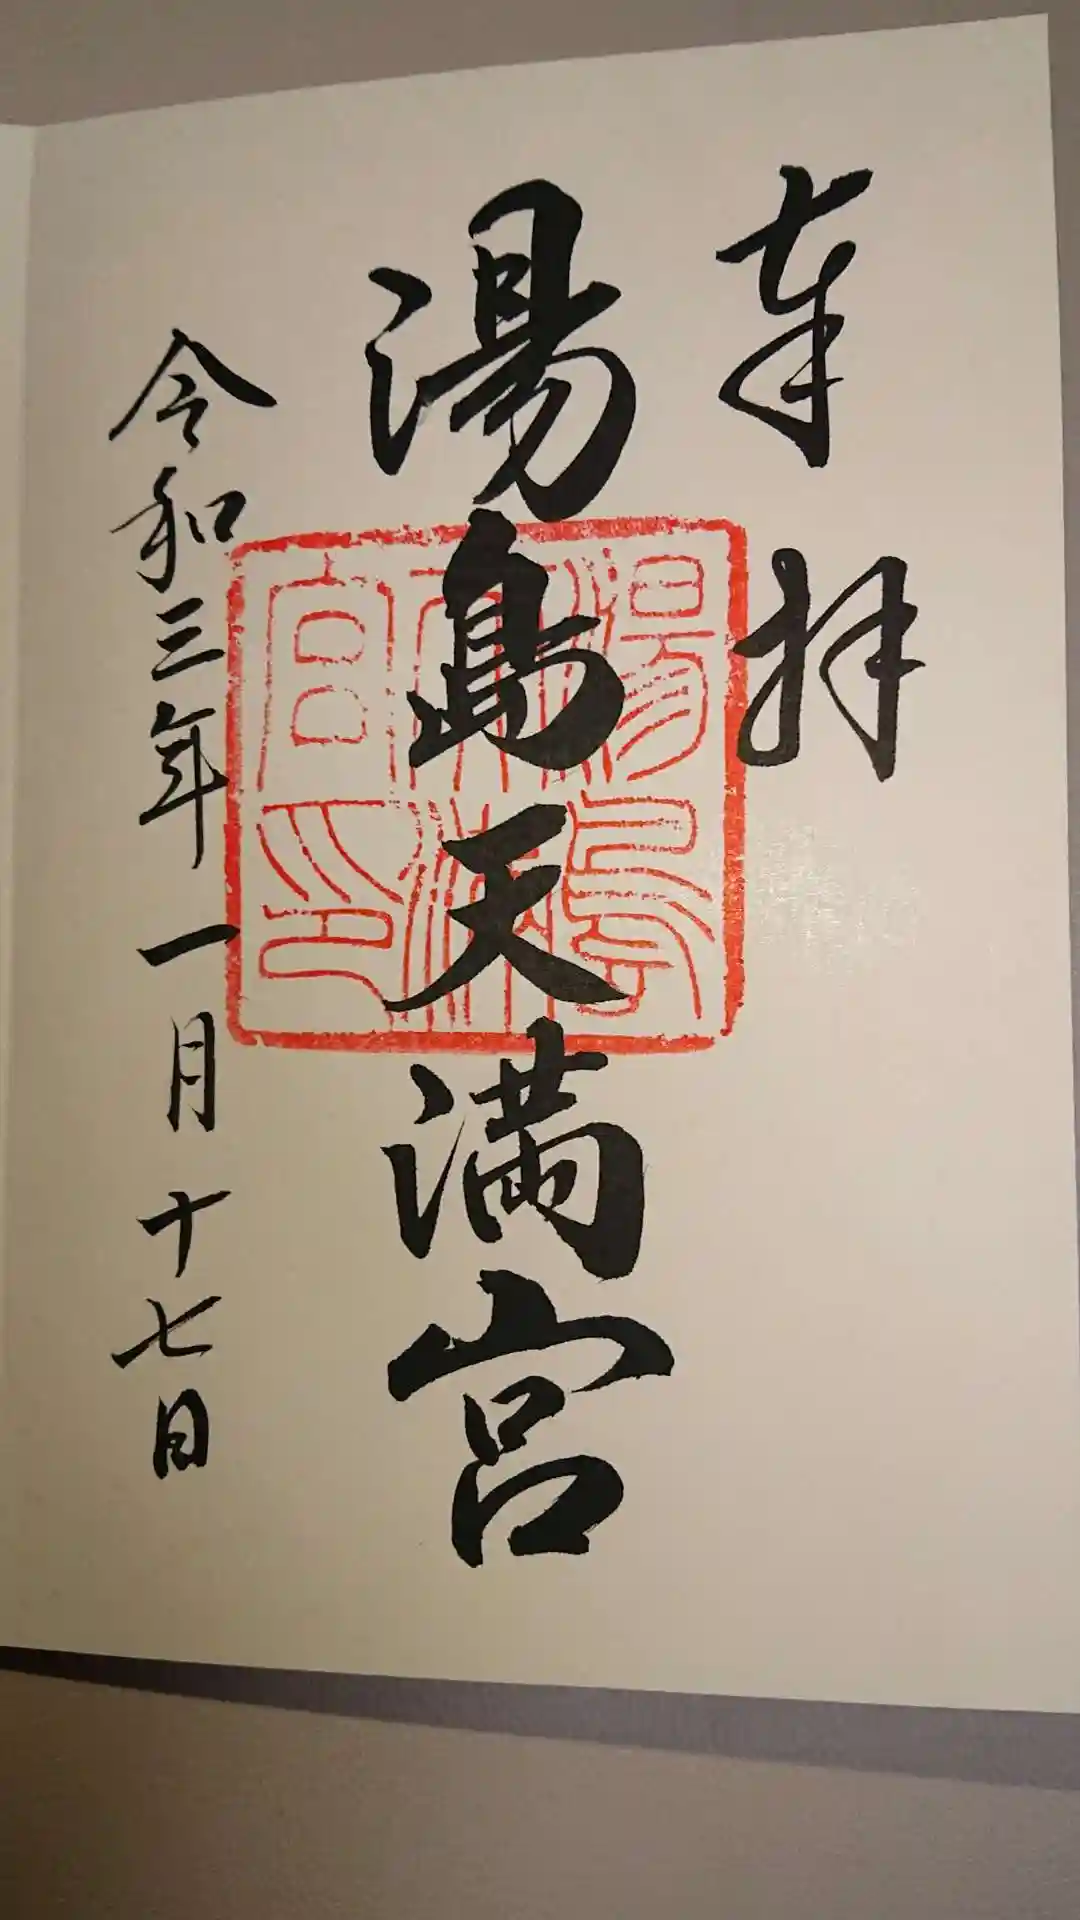 奉拝
湯島天満宮
令和三年一月十七日
湯島
天満
宮印